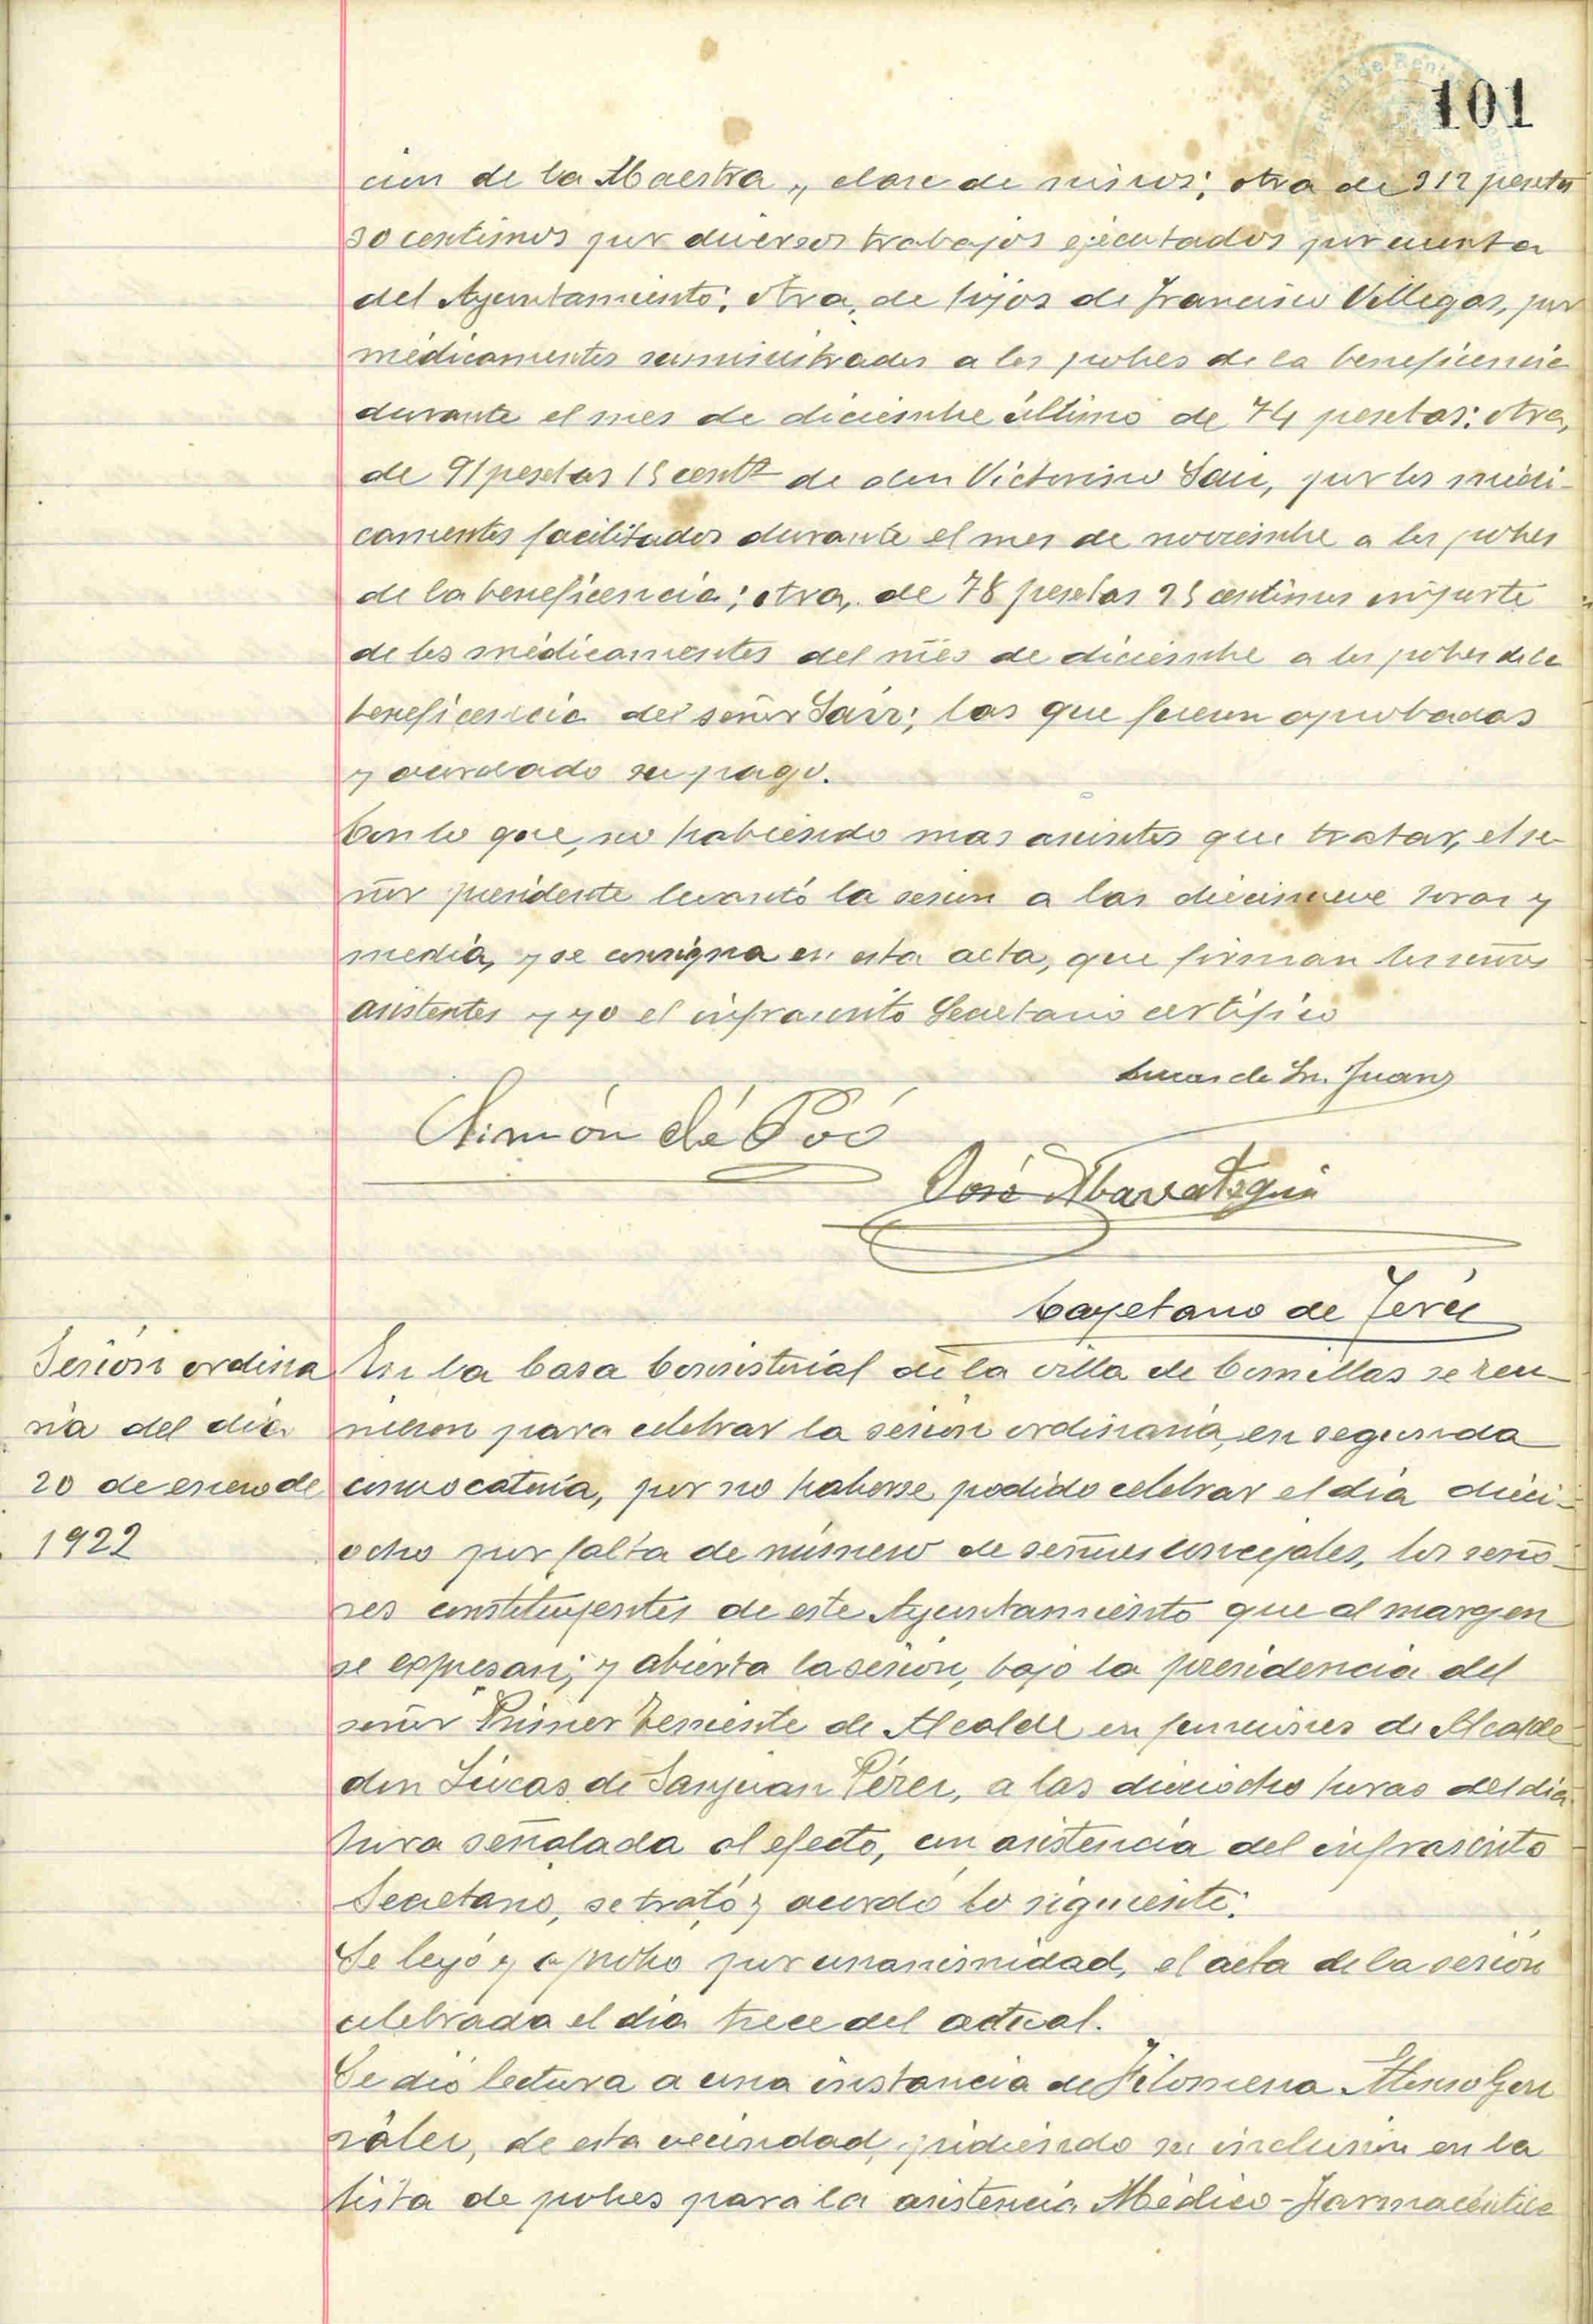 101
cion de la Maestra y clase de niños; otra de 312 pesetas
30 centimos por diversos trabajos ejecutados por cuenta
del Ayuntamiento; otra, de hijos de Francisco Villegas, por
médicamentos suministrados a los pobres de la beneficencia
durante el mes de diciembre último de 74 pesetas; otra,
de 91 pesetas 15 cents de don Victorino Sáiz, por los médi-
camentos facilitados durante el mes de noviembre a los pobres
de la beneficencia; otra, de 78 pesetas 25 centimos importe
de los médicamentos del mes de diciembre a los pobres de la
beneficencia del señor Saiz; las que fueron aprobadas
y acordado su pago.
Con lo que, no habiendo mas asuntos que tratar, el se-
ñor presidente levantó la sesion a las diecinueve horas y
media, y se consigna en esta acta, que firman los señores
asistentes y yo el infrascrito Secretario certifico
Lucas de Sn. Juan
Simón de Poó
José Abarategui
Cayetano de Jerez
Sesión ordina
ria del dia
20 de enero de
1922
En la Casa Consistorial de la villa de Comillas se reu-
nieron para celebrar la sesión ordinaria, en segunda
convocatoria, por no haberse podido celebrar el dia dieci-
ocho por falta de número de señores concejales, los seño-
res constituyentes de este Ayuntamiento que al margen
se expresan; y abierta la sesión, bajo la presidencia del
señor Primer Teniente de Alcalde en funciones de Alcalde
don Lúcas de Sanjuan Pérez, a las dieciocho horas del dia
hora señalada al efecto, con asistencia del infrascrito
Secretario, se trató y acordó lo siguiente:
Se leyó y aprobó por unanimidad, el acta de la sesión
celebrada el dia trece del actual.
Se dió lectura a una instancia de Filomena Alonso Gon
zález, de esta vecindad, pidiendo su inclusión en la
lista de pobres para la asistencia Médico-Farmacéutica